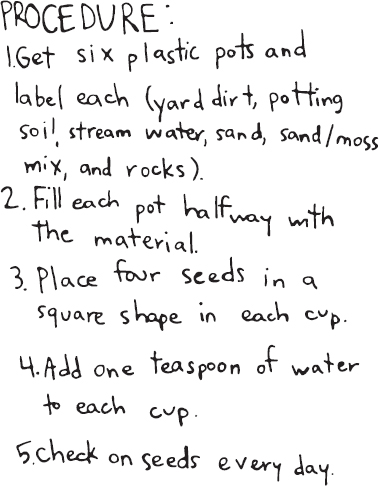 PROCEDURE:
1.Get six plastic pots and
label each (yard dirt, potting
soil, stream water, sand, sand/moss
mix, and rocks).
2. Fill each pot halfway with
the material.
3. Place four seeds in a
square shape in each cup.
4. Add one teaspoon of water
to each cup.
5. Check on seeds every day.